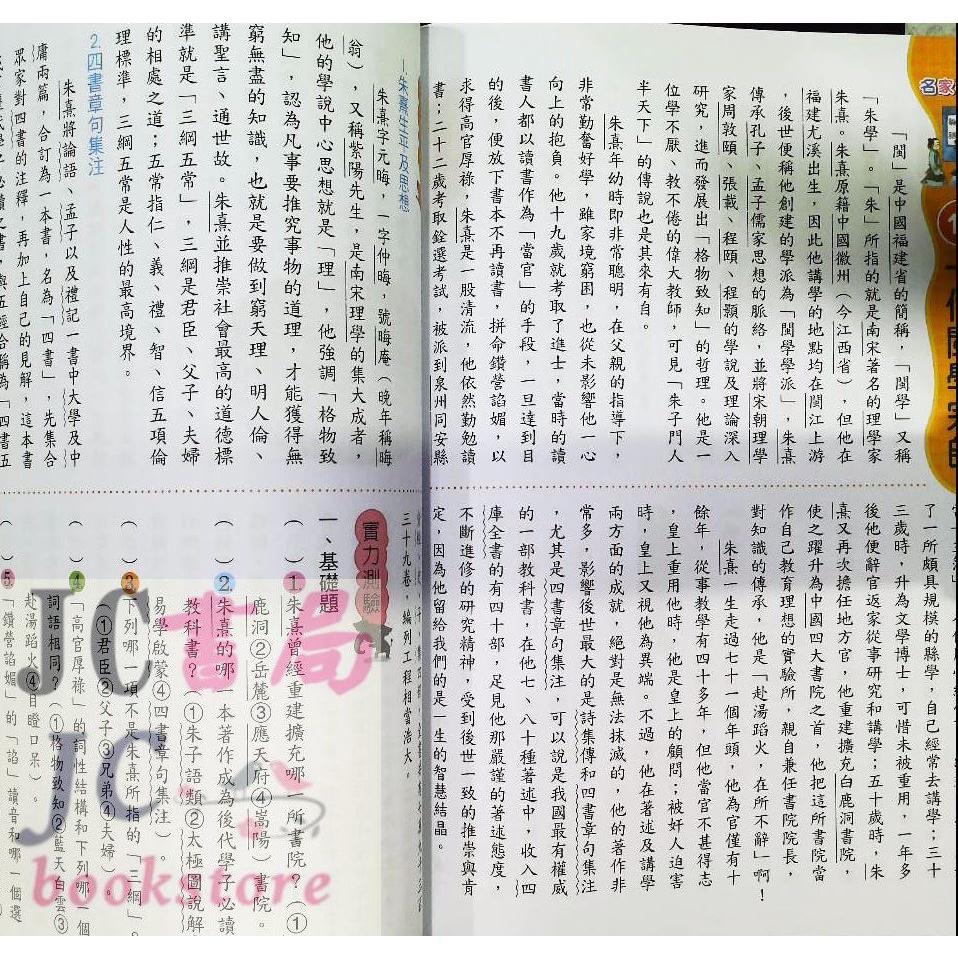 名家
「閩」是中國福建省的簡稱,「閩學」又稱
「朱學」。「朱」所指的就是南宋著名的理學家
朱熹。朱熹原籍中國徽州(今江西省),但他在
福建尤溪出生,因此他講學的地點均在閩江上游
,後世便稱他創建的學派為「閩學學派」,朱熹
傳承孔子、孟子儒家思想的脈絡,並將宋朝理學
家周敦頤、張載、程頤、程顥的學說及理論深入
研究,進而發展出「格物致知」的哲理。他是一
位學不厭、教不倦的偉大教師,可見「朱子門人
半天下」的傳說也是其來有自。
朱熹年幼時即非常聰明,在父親的指導下,
非常勤奮好學,雖家境窮困,也從未影響他一心
向上的抱負。他十九歲就考取了進士,當時的讀
書人都以讀書作為「當官」的手段,一旦達到目
的後,便放下書本不再讀書,拼命鑽營諂媚,以
求得高官厚祿,朱熹是一股清流,他依然勤勉讀
書;二十二歲考取銓選考試,被派到泉州同安縣
了一所頗具規模的縣學,自己經常去講學;三十
三歲時,升為文學博士,可惜未被重用,一年多
後他便辭官返家從事研究和講學;五十歲時,朱
熹又再次擔任地方官,他重建擴充白鹿洞書院,
使之躍升為中國四大書院之首,他把這所書院當
作自己教育理想的實驗所,親自兼任書院院長,
對知識的傳承,他是「赴湯蹈火,在所不辭」啊!
朱熹一生走過七十一個年頭,他為官僅有十
餘年,從事教學有四十多年,但他當官不甚得志
,皇上重用他時,他是皇上的顧問;被奸人迫害
時,皇上又視他為異端。不過,他在著述及講學
兩方面的成就,絕對是無法抹滅的,他的著作非
常多,影響後世最大的是詩集傳和四書章句集注
,尤其是四書章句集注,可以說是我國最有權威
的一部教科書,在他七、八十種著述中,收入四
庫全書的有四十部,足見他那嚴謹的著述態度,
不斷進修的研究精神,受到後世一致的推崇與肯
定,因為他留給我們的是一生的智慧結晶。
—朱熹生平及思想
朱熹字元晦,一字仲晦,號晦庵(晚年稱晦
翁),又稱紫陽先生,是南宋理學的集大成者,
他的學說中心思想就是「理」,他強調「格物致
知」,認為凡事要推究事物的道理,才能獲得無
窮無盡的知識,也就是要做到窮天理、明人倫、
講聖言、通世故。朱熹並推崇社會最高的道德標
準就是「三綱五常」,三綱是君臣、父子、夫婦
的相處之道;五常指仁、義、禮、智、信五項倫
理標準,三綱五常是人性的最高境界。
2.四書章句集注
朱熹將論語、孟子以及禮記一書中大學及中
庸兩篇,合訂為一本書,名為「四書」,先集合
眾家對四書的注釋,再加上自己的見解,這本書
三十九卷,編列工程相當浩大。
實力測驗
一、基礎題
( )1.朱熹曾經重建擴充哪一所書院?(①
鹿洞②岳麓③應天府④嵩陽)書院。
( )2.朱熹的哪一本著作成為後代學子必讀
教科書?(①朱子語類②太極圖說解
易學啟蒙④四書章句集注)。
( )3.下列哪一項不是朱熹所指的「三綱」
(①君臣②父子③兄弟④夫婦)。
( )4.「高官厚祿」的詞性結構和下列哪一個
詞語相同?(①格物致知②藍天白雲③
赴湯蹈火④目瞪口呆)。
( )5.「鑽營諂媚」的「諂」讀音和哪一個選
JC書局
JC
bookstore